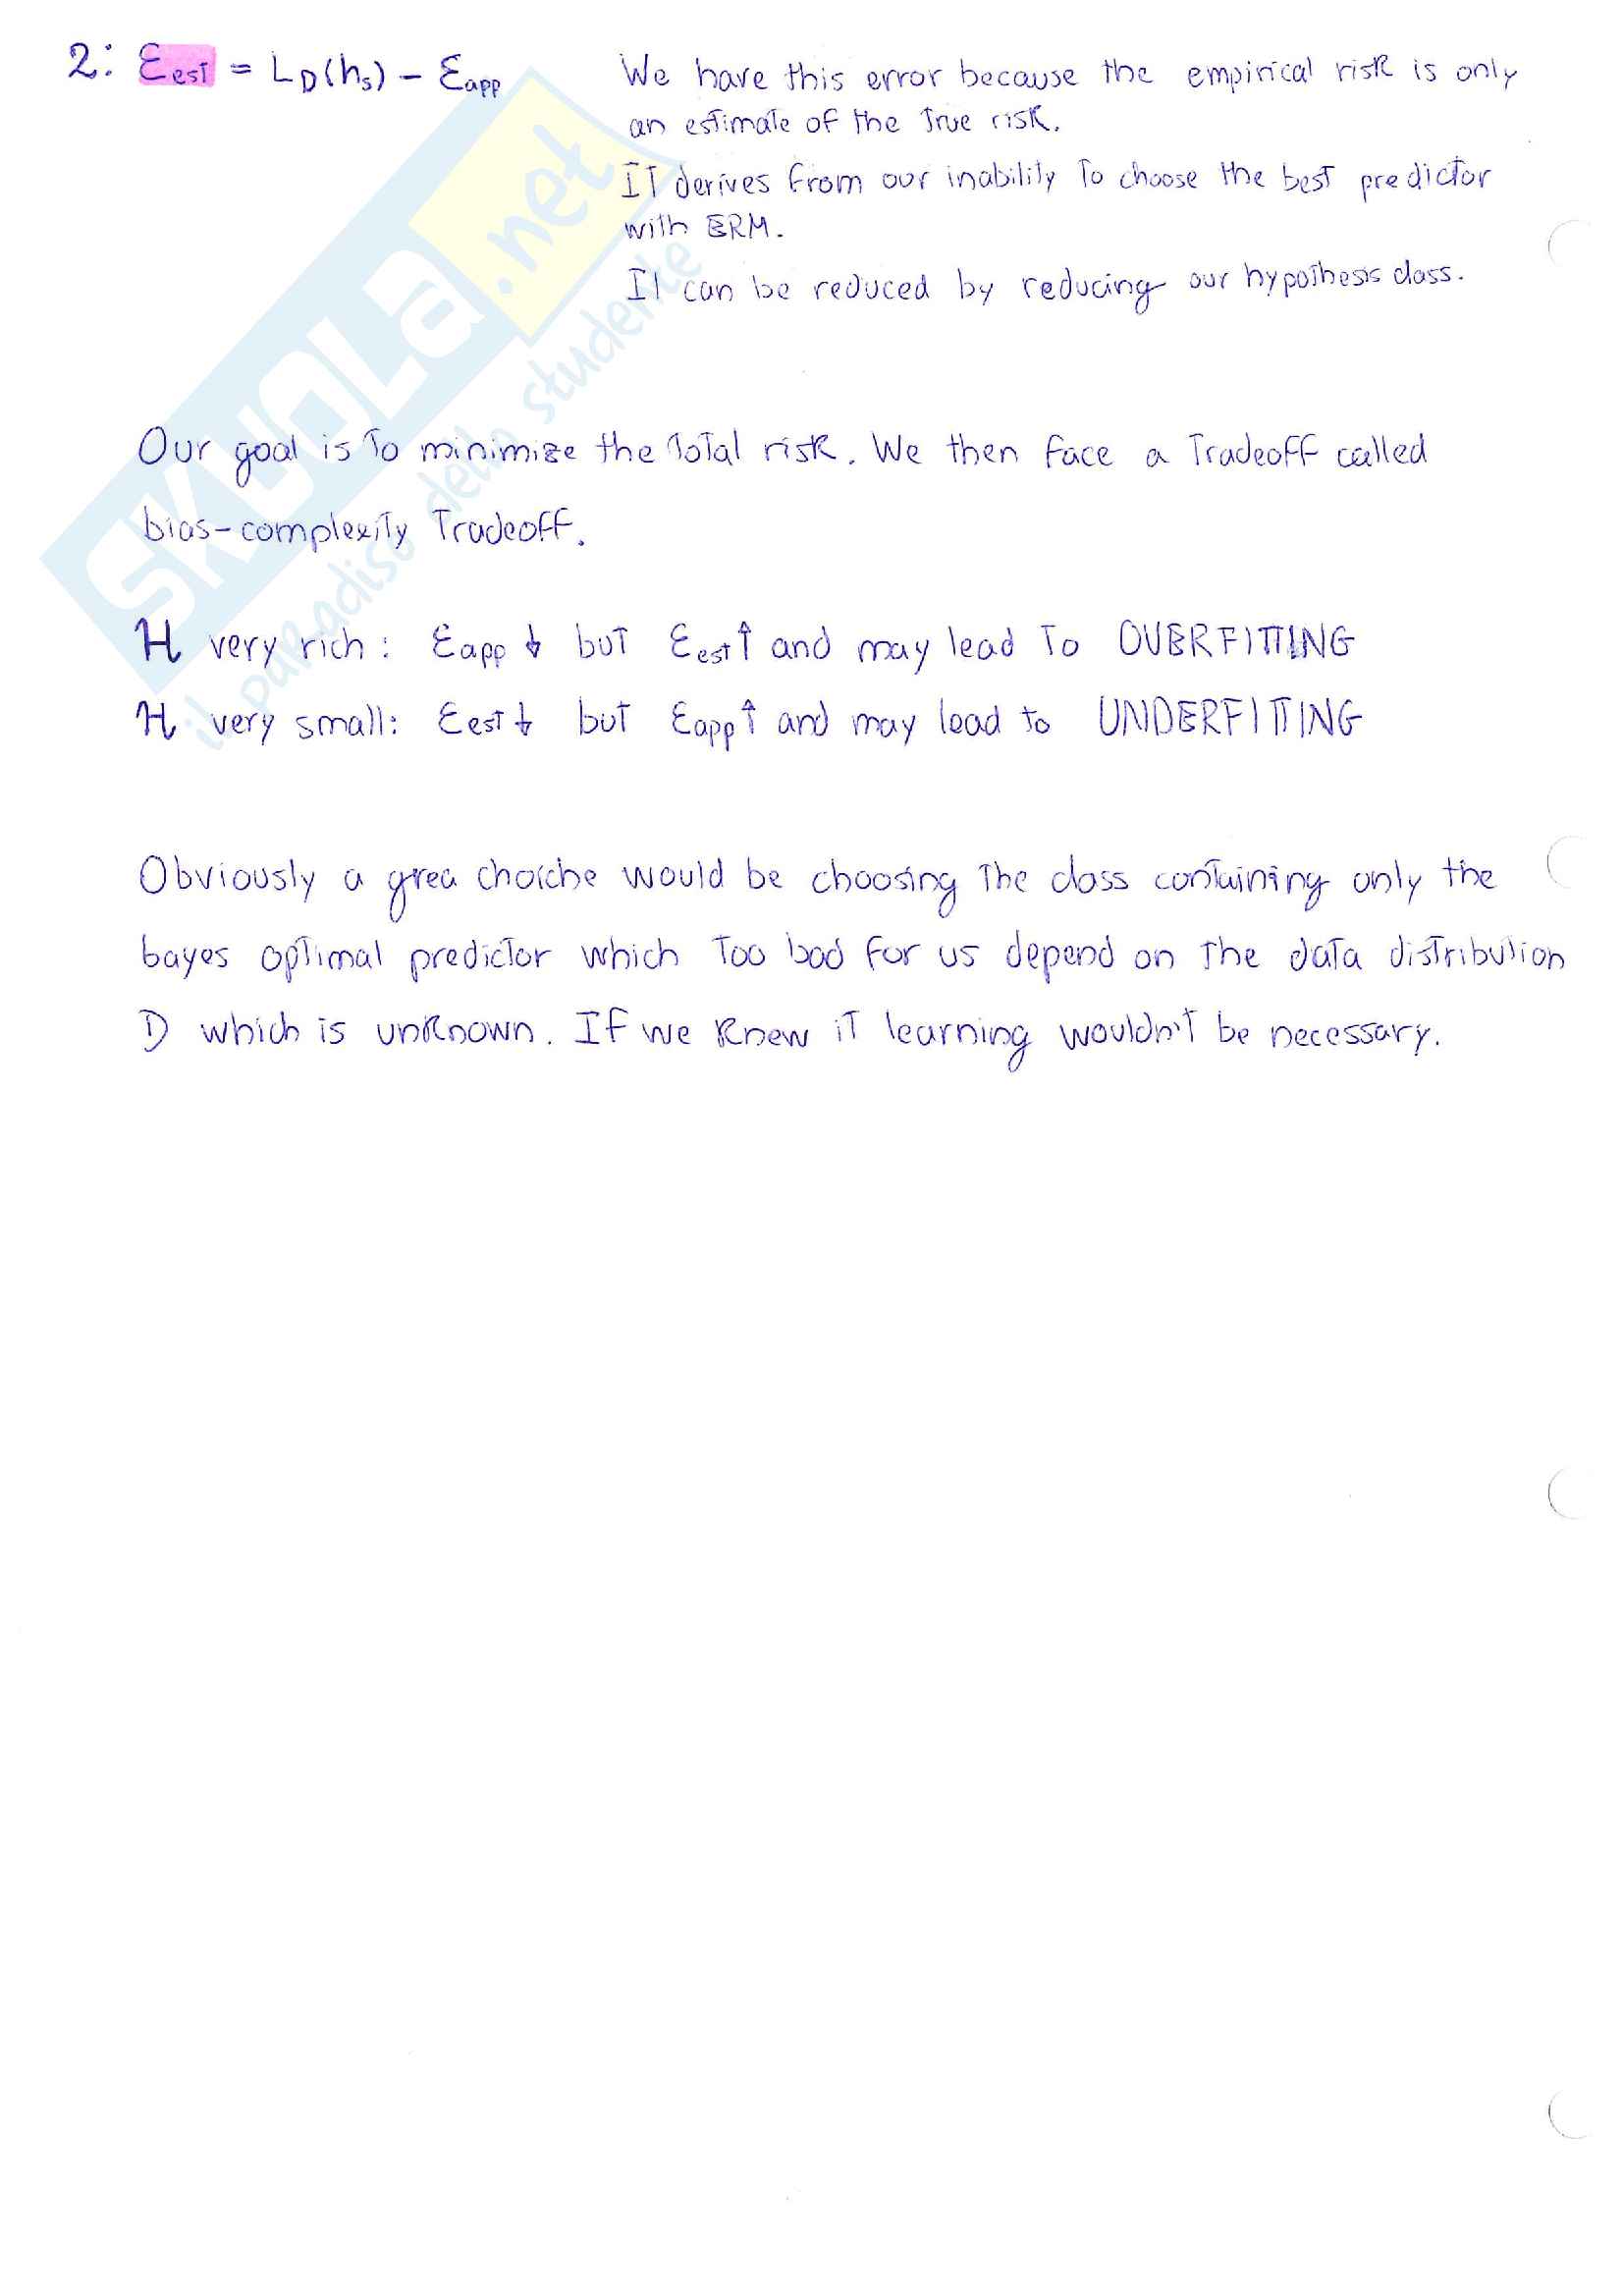 2: Ɛest = L_D(h_s) - Ɛapp We have this error because the empirical risk is only
an estimate of the true risk.
It derives from our inability to choose the best predictor
with ERM.
It can be reduced by reducing our hypothesis class.
Our goal is to minimize the total risk. We then face a tradeoff called
bias-complexity tradeoff.
H very rich: Ɛapp ↓ but Ɛest ↑ and may lead to OVERFITTING
H very small: Ɛest ↓ but Ɛapp ↑ and may lead to UNDERFITTING
Obviously a grea choiche would be choosing the class containing only the
bayes optimal predictor which too bad for us depend on the data distribution
D which is unknown. If we knew it learning wouldn't be necessary.
SKUOLA.net
il paradiso dello studente